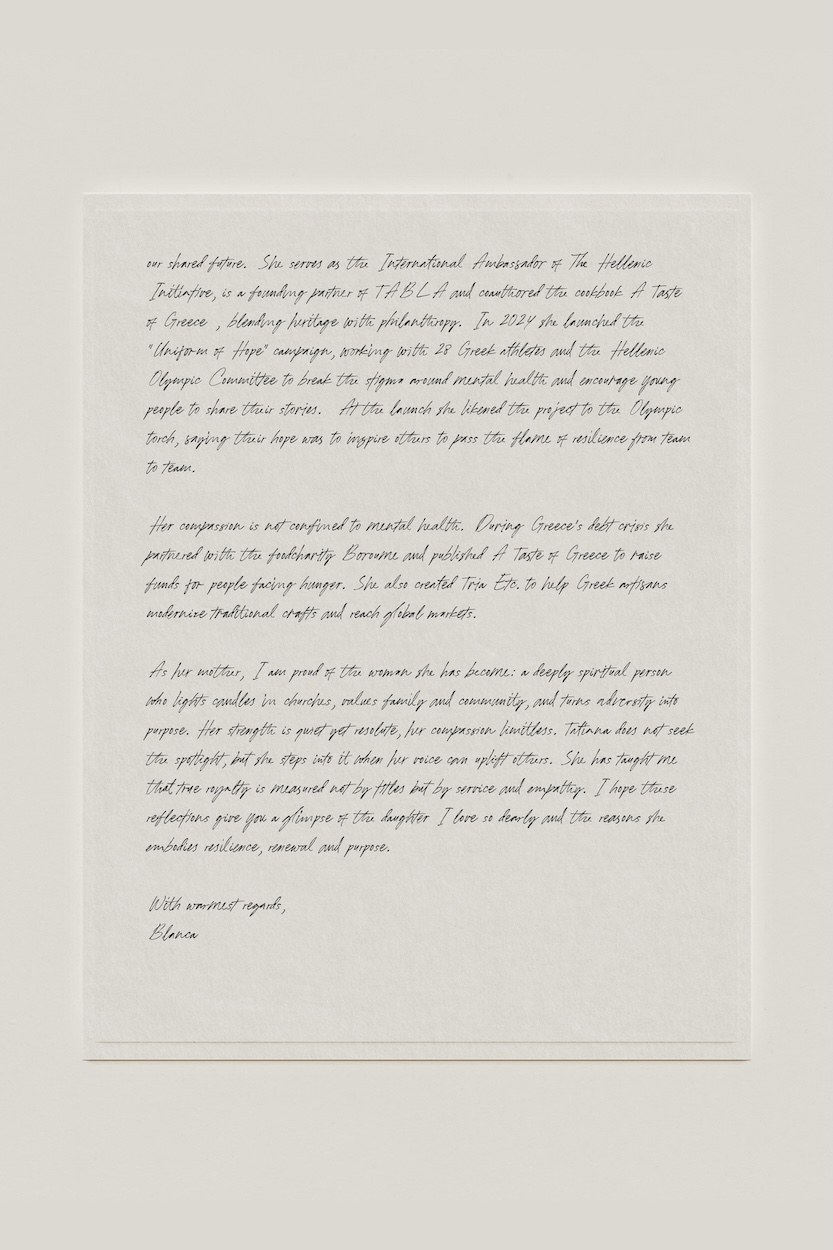 our shared future. She serves as the International Ambassador of The Hellenic
Initiative, is a founding partner of TABLA and coauthored the cookbook A Taste
of Greece , blending heritage with philanthropy. In 2024 she launched the
"Uniform of Hope" campaign, working with 28 Greek athletes and the Hellenic
Olympic Committee to break the stigma around mental health and encourage young
people to share their stories. At the launch she likened the project to the Olympic
torch, saying their hope was to inspire others to pass the flame of resilience from team
to team.
Her compassion is not confined to mental health. During Greece's debt crisis she
partnered with the foodcharity Boroume and published A Taste of Greece to raise
funds for people facing hunger. She also created Tria Etc. to help Greek artisans
modernize traditional crafts and reach global markets.
As her mother, I am proud of the woman she has become: a deeply spiritual person
who lights candles in churches, values family and community, and turns adversity into
purpose. Her strength is quiet yet resolute, her compassion limitless. Tatiana does not seek
the spotlight, but she steps into it when her voice can uplift others. She has taught me
that true royalty is measured not by titles but by service and empathy. I hope these
reflections give you a glimpse of the daughter I love so dearly and the reasons she
embodies resilience, renewal and purpose.
With warmest regards,
Blanca